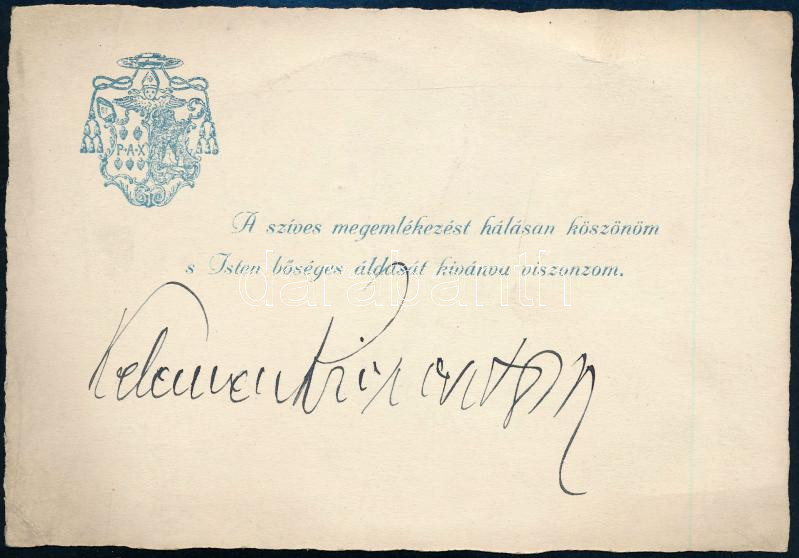 P·A·X
A szíves megemlékezést hálásan köszönöm
s Isten bőséges áldását kivánva viszonzom.
darabanth
Kelemen Krizosztom